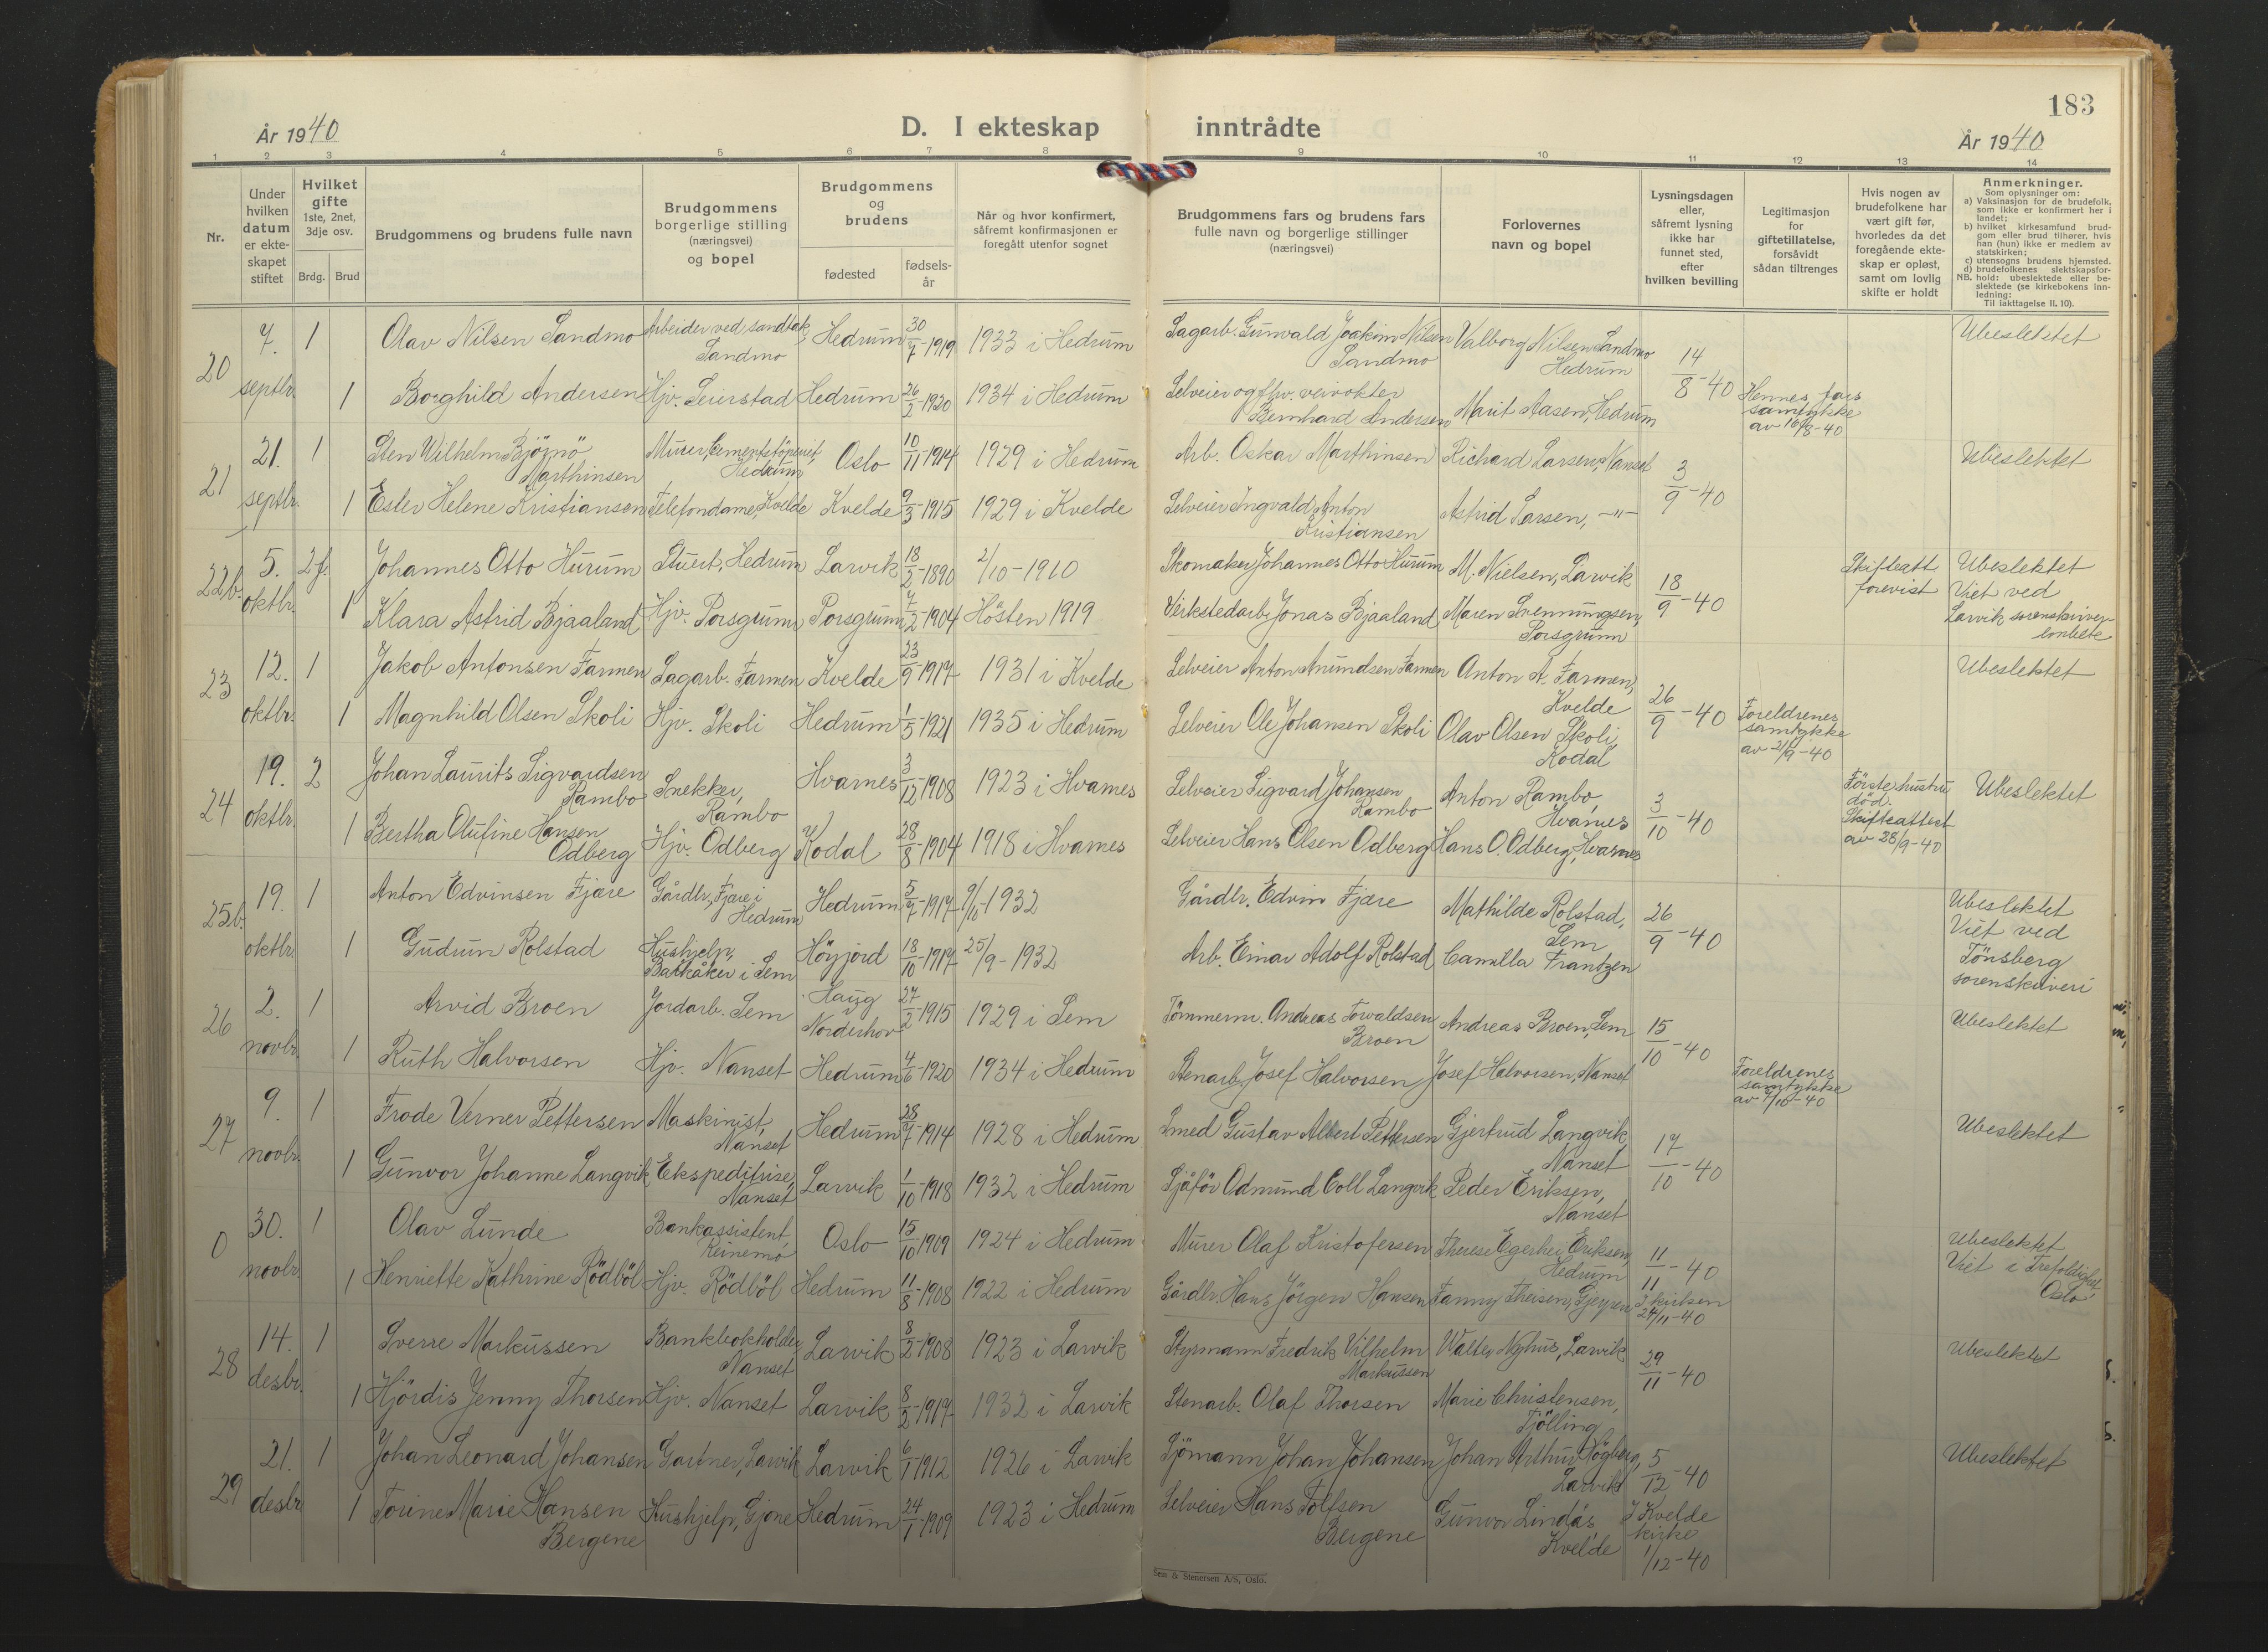 183
År 1940
D. I ekteskap inntrådte
År 1940
1 2 3 4 5 6 7 8 9 10 11 12 13 14
Nr.
Under
hvilken
datum
er ekte-
skapet
stiftet
Hvilket
gifte
1ste, 2net,
3dje osv.
Brdg. Brud
Brudgommens og brudens fulle navn
Brudgommens
borgerlige stilling
(næringsvei)
og bopel
Brudgommens
og
brudens
fødested
fødsels-
år
Når og hvor konfirmert,
såfremt konfirmasjonen er
foregått utenfor sognet
Brudgommens fars og brudens fars
fulle navn og borgerlige stillinger
(næringsvei)
Forlovernes
navn og bopel
Lysningsdagen
eller,
såfremt lysning
ikke har
funnet sted,
efter
hvilken bevilling
Legitimasjon
for
giftetillatelse,
forsåvidt
sådan tiltrenges
Hvis nogen av
brudefolkene har
vært gift før,
hvorledes da det
foregående ekte-
skap er opløst,
samt om lovlig
skifte er holdt
Anmerkninger.
Som oplysninger om:
a) Vaksinasjon for de brudefolk,
som ikke er konfirmert her i
landet;
b) hvilket kirkesamfund brud-
gom eller brud tilhører, hvis
han (hun) ikke er medlem av
statskirken;
c) utensogns brudens hjemsted.
d) brudefolkenes slektskapsfor-
hold: ubeslektede eller be-
slektede (se kirkebokens inn-
ledning:
NB.
Til iakttagelse II. 10).
20 7. septbr. 1 Olav Nilsen Sandmo Arbeider ved sandtak, Sandmo Hedrum 30/7-1919 1933 i Hedrum Sagarb. Gunvald Joakim Nilsen Sandmo Valborg Nilsen Sandmo Hedrum 14/8-40 Ubeslektet
1 Borghild Andersen Hjv. Seierstad Hedrum 26/2-1920 1934 i Hedrum Selveier og fhv. veivokter Bernhard Andersen Marit Aasen, Hedrum Hennes fars samtykke av 16/8-40
21 21. septbr. 1 Sten Wilhelm Bjørnö Marthinsen Murer, Cementstöperiet, Hedrum Oslo 10/11-1914 1929 i Hedrum Arb. Oskar Marthinsen Richard Larsen, Nanset 3/9-40 Ubeslektet
1 Ester Helene Kristiansen Telefondame, Kvelde Kvelde 9/3-1915 1929 i Kvelde Selveier Ingvald Anton Kristiansen Astrid Larsen, -"-
22b. 5. oktbr. 2f. Johannes Otto Hurum Stuert, Hedrum Larvik 18/2-1890 2/10-1910 Skomaker Johannes Otto Hurum M. Nielsen, Larvik 18/9-40 Skifteatt. forevist Ubeslektet Viet ved Larvik sorenskriver-embete
1 Klara Astrid Bjaaland Hjv. Porsgrunn Porsgrunn 4/2-1904 Hösten 1919 Verkstedarb. Jonas Bjaaland Maren Svennungsen, Porsgrunn
23 12. oktbr. 1 Jakob Antonsen Farmen Sagarb. Farmen Kvelde 23/9-1917 1931 i Kvelde Selveier Anton Anundsen Farmen Anton A. Farmen, Kvelde 26/9-40 Ubeslektet
1 Magnhild Olsen Skoli Hjv. Skoli Hedrum 1/5-1921 1935 i Hedrum Selveier Ole Johansen Skoli Olav Olsen Skoli, Kodal Foreldrenes samtykke av 21/9-40
24 19. oktbr. 2 Johan Laurits Sigvardsen Rambo Snekker, Rambo Hvarnes 3/12-1908 1923 i Hvarnes Selveier Sigvard Johansen Rambo Anton Rambo, Hvarnes 3/10-40 Første hustru död. Skifteattest av 28/9-40 Ubeslektet
1 Bertha Olufine Hansen Odberg Hjv. Odberg Kodal 28/8-1904 1918 i Hvarnes Selveier Hans Olsen Odberg Hans O. Odberg, Hvarnes
25b. 19. oktbr. 1 Anton Edvinsen Fjære Gårdbr., Fjære i Hedrum Hedrum 5/7-1917 9/10-1932 Gårdbr. Edvin Fjære Mathilde Rolstad, Sem 26/9-40 Ubeslektet Viet ved Tönsberg sorenskriveri
1 Gudrun Rolstad Hushjelp, Barkåker i Sem Höyjord 18/10-1917 25/9-1932 Arb. Einar Adolf Rolstad Camilla Frantzen
26 2. novbr. 1 Arvid Broen Jordarb. Sem Haug i Norderhov 27/2-1915 1929 i Sem Tömmerm. Andreas Torvaldsen Broen Andreas Broen, Sem 15/10-40 Ubeslektet
1 Ruth Halvorsen Hjv. Nanset Hedrum 4/6-1920 1934 i Hedrum Stenarb. Josef Halvorsen Josef Halvorsen, Nanset Foreldrenes samtykke av 7/10-40
27 9. novbr. 1 Frode Verner Pettersen Maskinist, Nanset Hedrum 28/7-1914 1928 i Hedrum Smed Gustav Albert Pettersen Gjertrud Langvik, Nanset 17/10-40 Ubeslektet
1 Gunvor Johanne Langvik Ekspeditrise, Nanset Larvik 1/10-1918 1932 i Hedrum Sjåför Odmund Coll Langvik Peder Eriksen, Nanset
0 30. novbr. 1 Olav Lunde Bankassistent, Reinemo Oslo 15/10-1909 1924 i Hedrum Murer Olaf Kristofersen Therese Egerhei Eriksen, Hedrum 11/11-40 Ubeslektet Viet i Trefoldighet, Oslo
1 Henriette Kathrine Rödböl Hjv. Rödböl Hedrum 11/8-1908 1922 i Hedrum Gårdbr. Hans Jörgen Hansen Fanny Theisen, I kirken 24/11-40
28 14. desbr. 1 Sverre Markussen Bankbokholder, Nanset Larvik 8/2-1908 1923 i Larvik Styrmann Fredrik Vilhelm Markussen Walter Nyhus, Larvik 29/11-40 Ubeslektet
1 Hjördis Jenny Thorsen Hjv. Nanset Larvik 8/2-1917 1932 i Larvik Stenarb. Olaf Thorsen Marie Christensen, Tjölling
29 21. desbr. 1 Johan Leonard Johansen Gartner, Larvik Larvik 6/1-1912 1926 i Larvik Sjömann Johan Johansen Johan Arthur Larvik 5/12-40 Ubeslektet
1 Torine Marie Hansen Bergene Hushjelp, Gjone Hedrum 24/1-1909 1923 i Hedrum Selveier Hans Tolfsen Bergene Gunvor Lindås, Kvelde I Kvelde kirke 1/12-40
Sem & Stenersen A/S, Oslo.